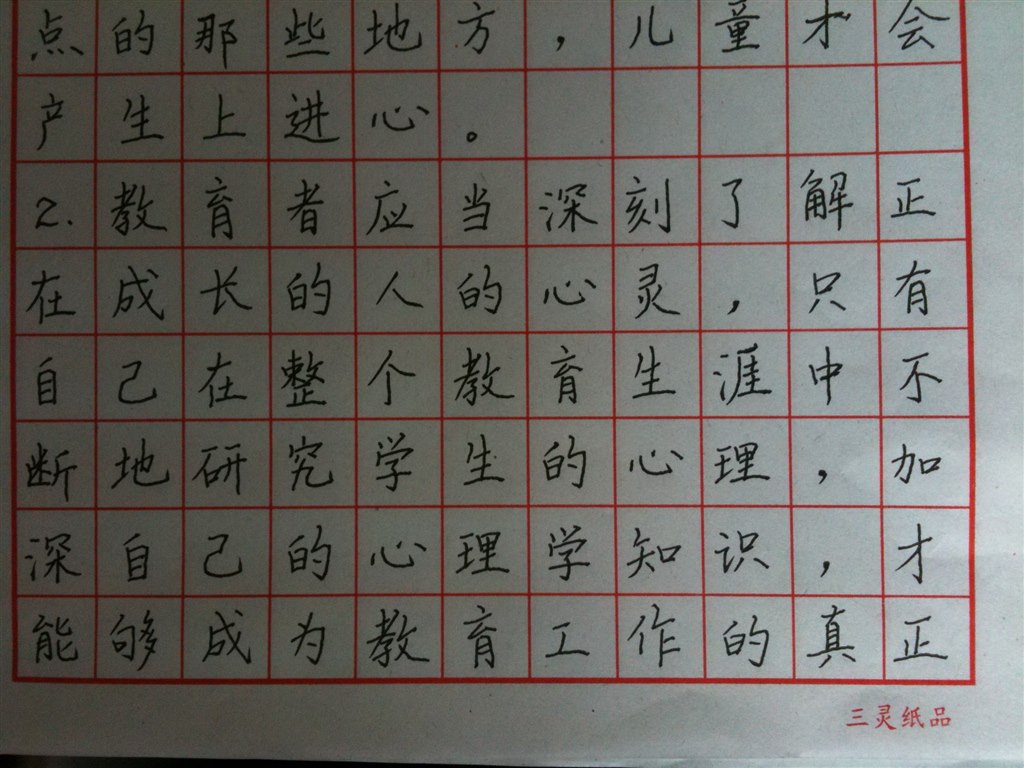 点的那些地方，儿童才会
产生上进心。
2.教育者应当深刻了解正
在成长的人的心灵，只有
自己在整个教育生涯中不
断地研究学生的心理，加
深自己的心理学知识，才
能够成为教育工作的真正
三灵纸品